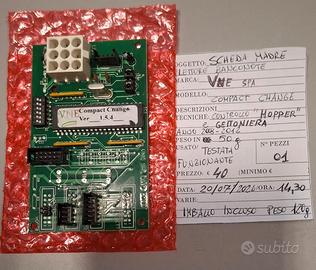 VNE
Compact Change
Ver 1.5.4
OGGETTO: SCHEDA MADRE
LETTORE BANCONOTE
MARCA: VNE SPA
MODELLO: COMPACT CHANGE
DESCRIZIONI
TECNICHE: CONTROLLO "HOPPER"
E GETTONIERA
ANNO
PESO IN 50g
TESTATA N° PEZZI
FUNZIONANTE 01
PREZZO: € 40 MINIMO €
DATA: 20/07/2026 ORA: 14,30
VARIE:
IMBALLO INCLUSO PESO 120g
subito